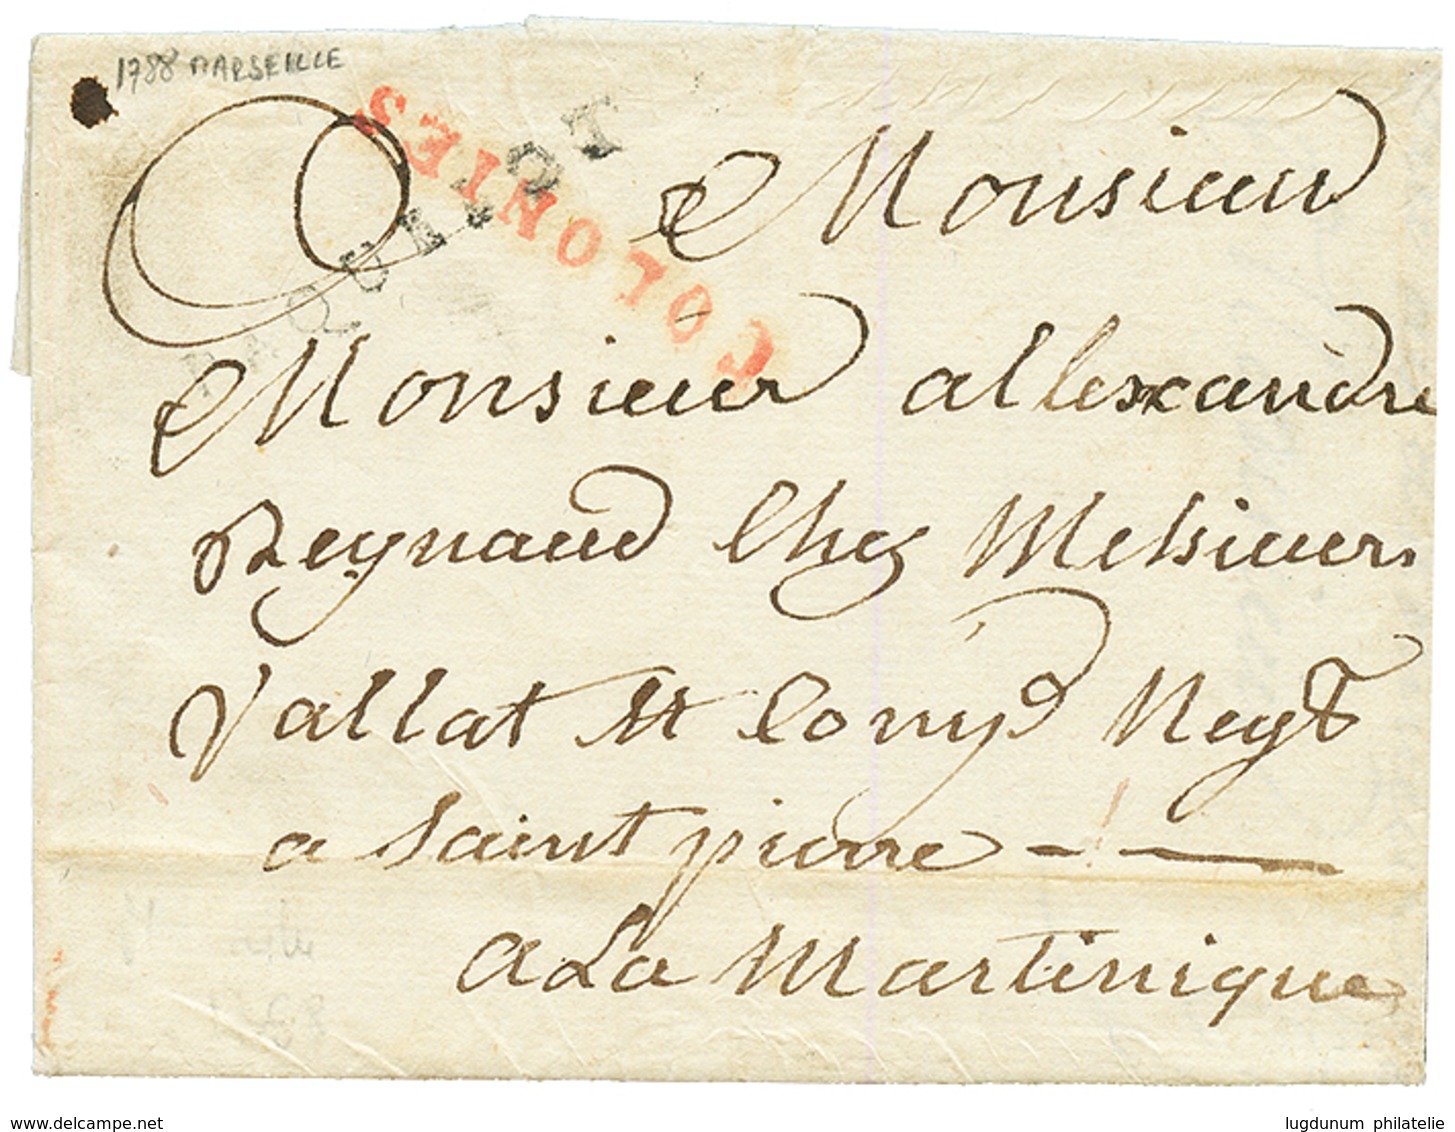 1788 MARSEILLE
COLONIES
PAQUEBOT
Monsieur
Monsieur allexandre
Reynaud Chez Messieurs
Vallat et Comp Negt
a Saint pierre
a La Martinique
www.delcampe.net
lugdunum philatelie